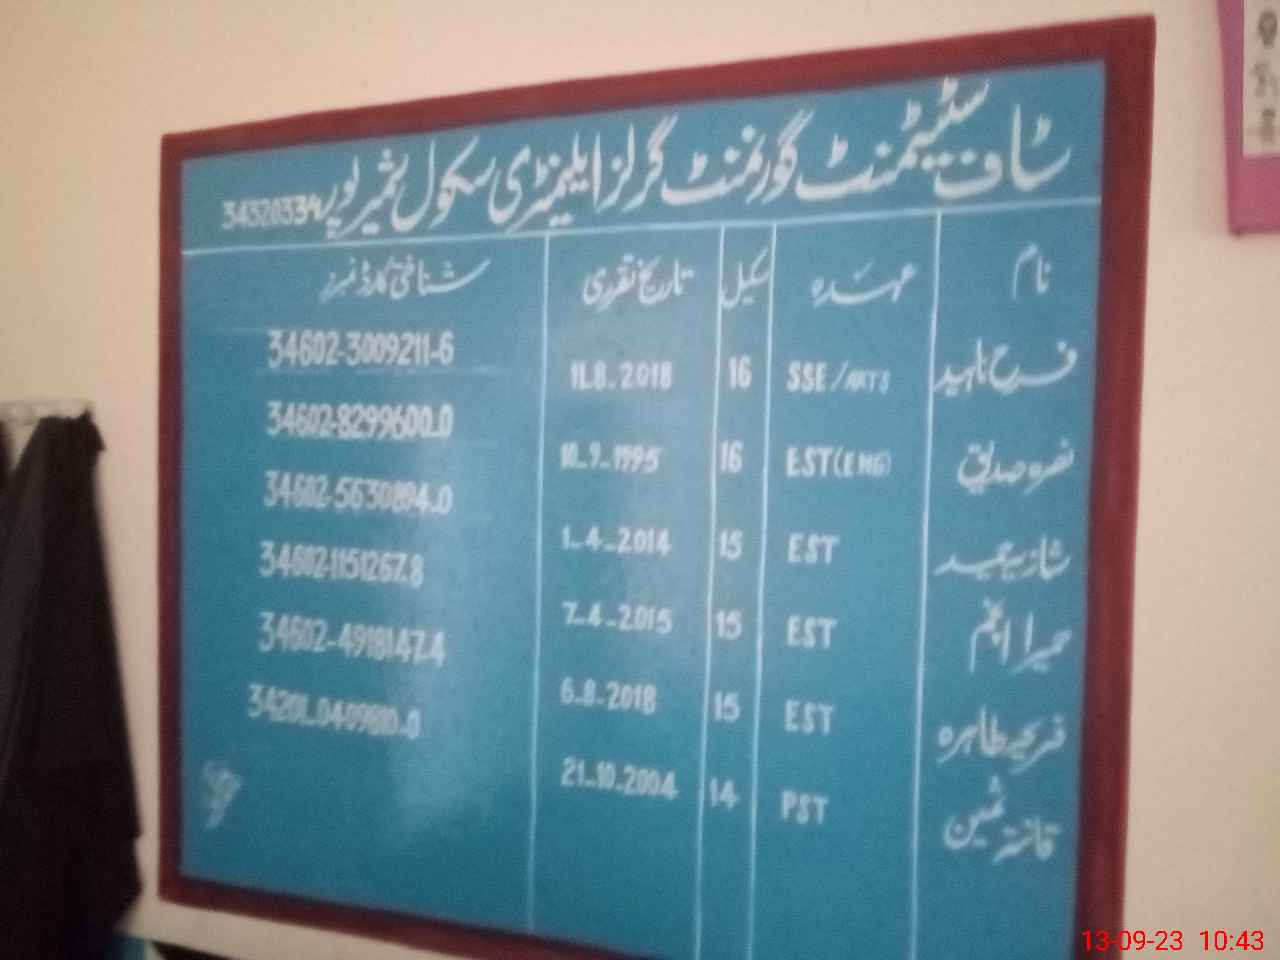 سٹاف سٹیٹمنٹ گورنمنٹ گرلز ایلیمنٹری سکول بشمیرپور 34320334
نام عہدہ سکیل تاریخ تقرری شناختی کارڈ نمبرز
فرح ناہید SSE/ARTS 16 11.8.2018 34602-3009211-6
نصرہ صدیق EST(ENG) 16 10.9.1995 34602-8299600.0
شازیہ حمید EST 15 1.4.2014 34602-5630894.0
حمیرا انجم EST 15 7.4.2015 34602-1151267.8
فریحہ طاہرہ EST 15 6.8.2018 34602-4918147.4
قانتہ ثمین PST 14 21.10.2004 34201.0409810.0
13-09-23 10:43